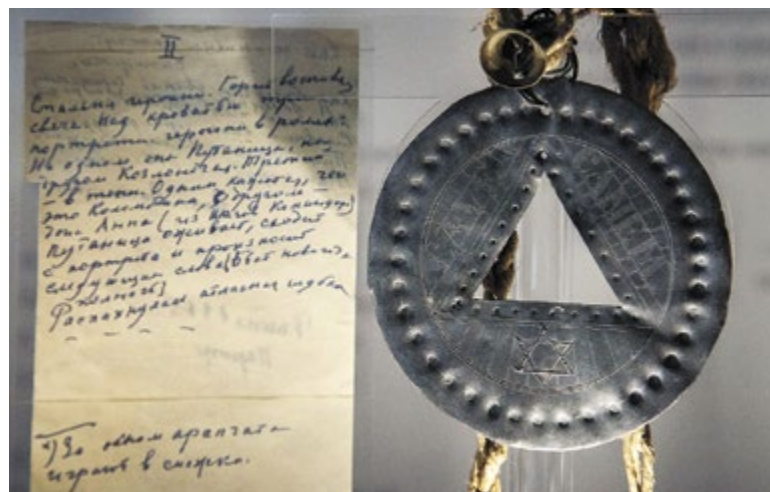 II
Спальня героини. Горит восковая
свеча. Над кроватью три
портрета героини в ролях:
На одном она Путаница, на
другом Козлоногая. Третий
– в тени. Одним кажется, что
это Коломбина, другим –
дона Анна (из шагов Командора)
Путаница оживает, сходит
с портрета и произносит
следующие слова
полночь)
Распахнулась атласная шубка
– – – –
*) За окном арапчата
играют в снежки.